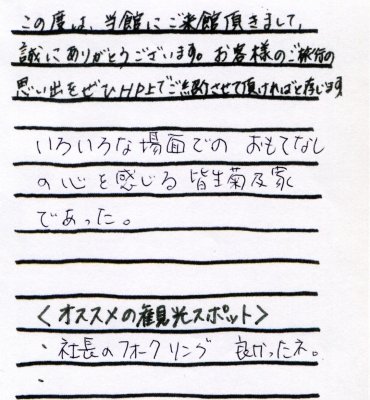 この度は、当館にご来館頂きまして、
誠にありがとうございます。お客様のご旅行の
思い出をぜひHP上でご紹介させて頂ければと存じます
いろいろな場面での おもてなし
の心を感じる 皆生菊乃家
であった。
〈オススメの観光スポット〉
・社長のフォークソング 良かったネ。
・